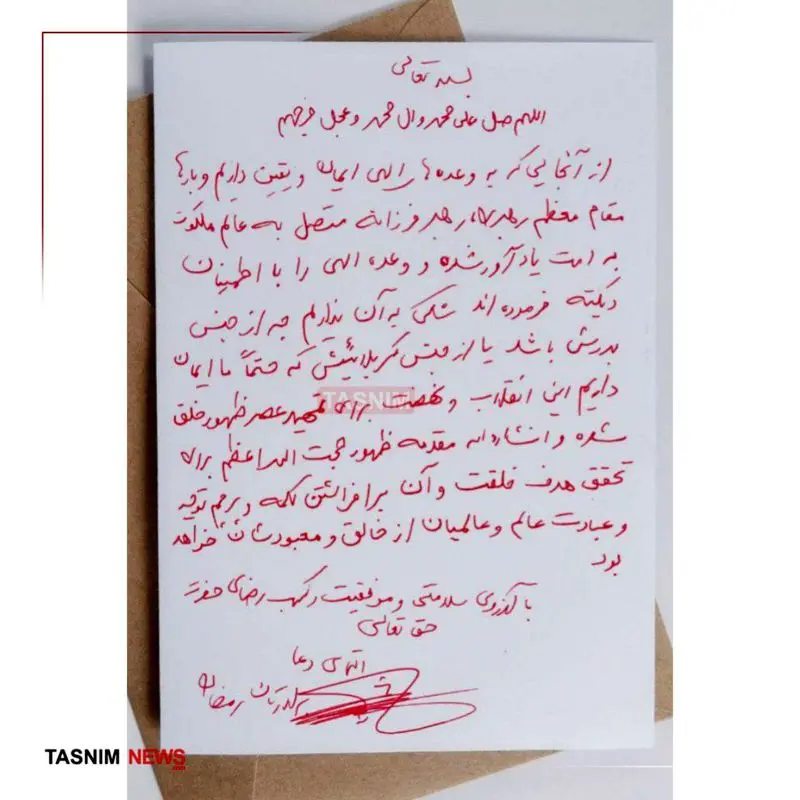 بسمه تعالی
اللهم صل علی محمد وال محمد و عجل فرجهم
از آنجایی که به وعده های الهی ایمان و یقین داریم و بارها
مقام معظم رهبری، رهبر فرزانه متصل به عالم ملکوت
به امت یادآور شده و وعده الهی را با اطمینان
دیکته فرموده اند شکی به آن نداریم چه از جنس
بدرش باشد یا از جنس کربلائیش که حتماً ما ایمان
داریم این انقلاب و نهضت برای تمهید عصر ظهور خلق
شده و انشاءاله مقدمه ظهور حجت اله اعظم برای
تحقق هدف خلقت و آن برافراشتن کلمه و پرچم توحید
و عبادت عالم و عالمیان از خالق و معبودشان خواهد
بود
با آرزوی سلامتی و موفقیت و کسب رضای حضرت
حق تعالی
التماس دعا
برادرتان رمضان
TASNIM
TASNIM NEWS
.com